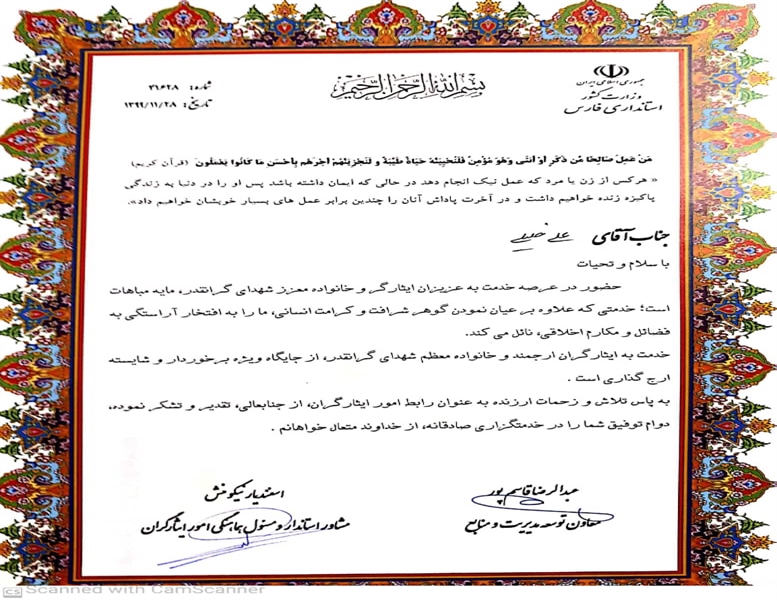 بسم الله الرحمن الرحیم
جمهوری اسلامی ایران
وزارت کشور
استانداری فارس
شماره: ۳۱۶۲۸
تاریخ: ۱۳۹۹/۱۱/۲۸
مَن عَمِلَ صَالِحًا مِّن ذَكَرٍ أَوْ أُنثَى وَهُوَ مُؤْمِنٌ فَلَنُحْيِيَنَّهُ حَيَاةً طَيِّبَةً وَلَنَجْزِيَنَّهُمْ أَجْرَهُم بِأَحْسَنِ مَا كَانُوا يَعْمَلُونَ (قرآن کریم)
« هرکس از زن یا مرد که عمل نیک انجام دهد در حالی که ایمان داشته باشد پس او را در دنیا به زندگی
پاکیزه زنده خواهیم داشت و در آخرت پاداش آنان را چندین برابر عمل های بسیار خویشان خواهیم داد».
جناب آقای علی خلیلی
با سلام و تحیات
حضور در عرصه خدمت به عزیزان ایثارگر و خانواده معزز شهدای گرانقدر، مایه مباهات
است؛ خدمتی که علاوه بر عیان نمودن گوهر شرافت و کرامت انسانی، ما را به افتخار آراستگی به
فضائل و مکارم اخلاقی، نائل می کند.
خدمت به ایثارگران ارجمند و خانواده معظم شهدای گرانقدر، از جایگاه ویژه برخوردار و شایسته
ارج گذاری است .
به پاس تلاش و زحمات ارزنده به عنوان رابط امور ایثارگران، از جنابعالی، تقدیر و تشکر نموده،
دوام توفیق شما را در خدمتگزاری صادقانه، از خداوند متعال خواهانم .
عبدالرضا قاسم پور
معاون توسعه مدیریت و منابع
اسفندیار نیکو منش
مشاور استاندار و مسئول هماهنگی امور ایثارگران
CS Scanned with CamScanner